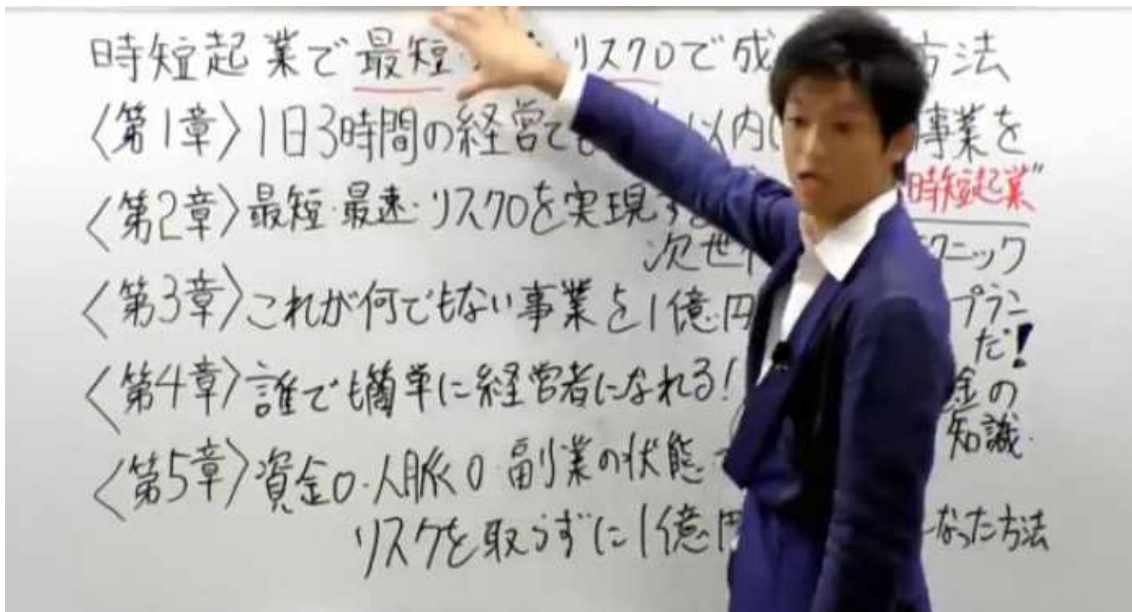 時短起業で最短・ リスク0で成 方法
〈第1章〉1日3時間の経営で 以内 事業を
〈第2章〉最短・最速・リスク0を実現する "時短起業"
次世 クニック
〈第3章〉これが何でもない事業を1億円 プラン
だ!
〈第4章〉誰でも簡単に経営者になれる! 金の
知識.
〈第5章〉資金0・人脈0 副業の状態
リスクを取らずに1億円 なった方法